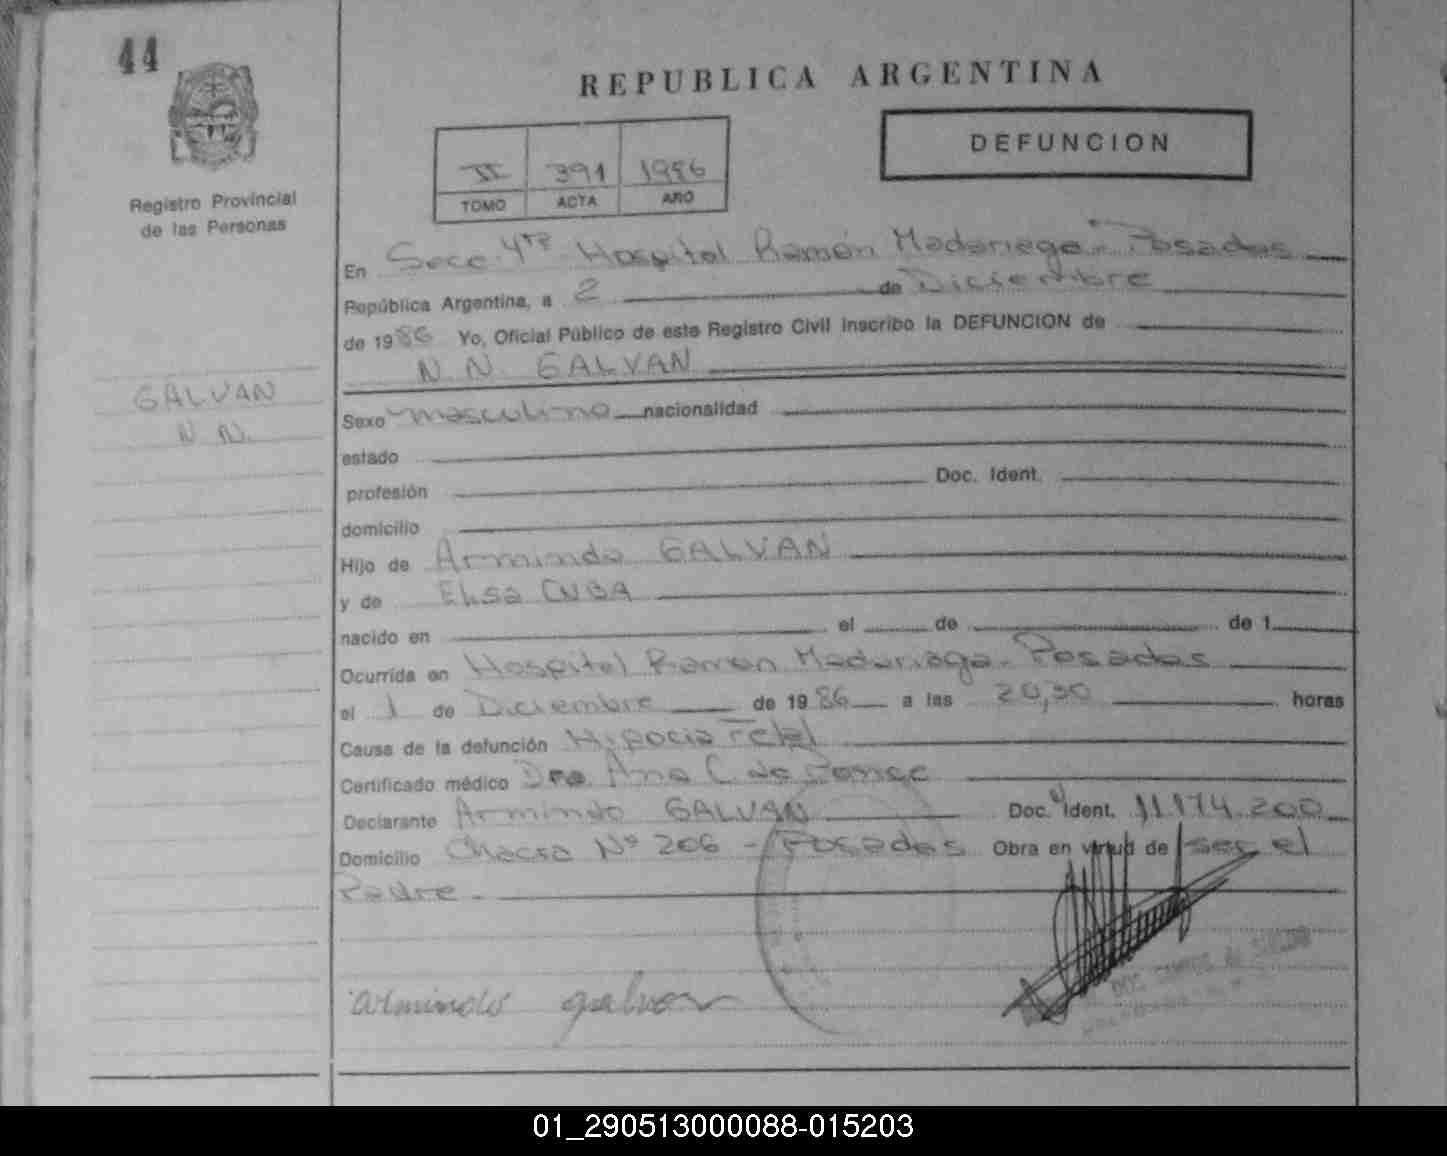 44
REPUBLICA ARGENTINA
DEFUNCION
II 391 1986
TOMO ACTA AÑO
Registro Provincial
de las Personas
En Secc. 4ta Hospital Ramón Madariaga - Posadas
República Argentina, a 2 de Diciembre
de 1986 Yo, Oficial Público de este Registro Civil inscribo la DEFUNCION de
N.N. GALVAN
GALVAN
N.N.
Sexo masculino nacionalidad
estado
profesión Doc. Ident.
domicilio
Hijo de Armindo GALVAN
y de Elsa CUBA
nacido en el de de 1
Ocurrida en Hospital Ramon Madariaga - Posadas
el 1 de Diciembre de 1986 a las 20,30 horas
Causa de la defunción Hipoxia Fetal
Certificado médico Dra. Ana C. de Ponce
Declarante Armindo GALVAN Doc. Ident. 11.174.200
Domicilio Chacra Nº 206 - Posadas Obra en virtud de ser el
Padre.
armindo galvan
01_290513000088-015203